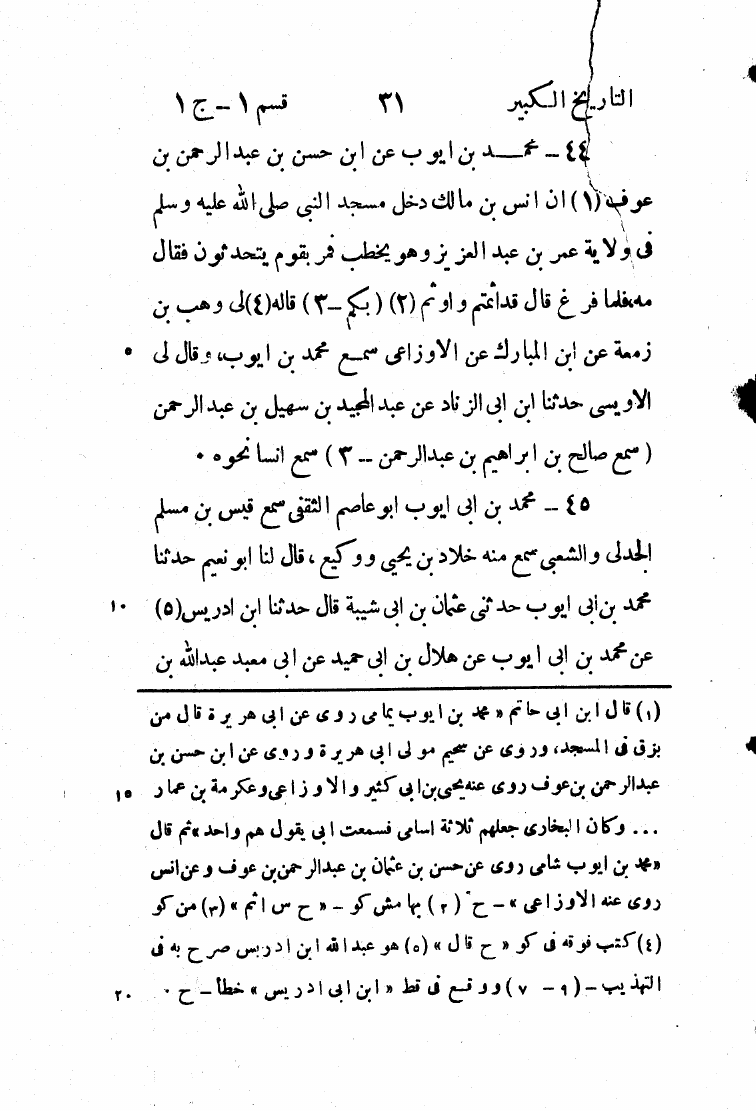 التاريخ الكبير ٣١ قسم ١ - ج ١
٤٤ - محمد بن ايوب عن ابن حسن بن عبد الرحمن بن
عوف (١) ان انس بن مالك دخل مسجد النبي صلى الله عليه وسلم
فى ولاية عمر بن عبد العزيز وهو يخطب فمر بقوم يتحدثون فقال
مه، فلما فرغ قال قد اثمتم واوثم (٢) (بكم - ٣) قاله (٤) لى وهب بن
زمعة عن ابن المبارك عن الاوزاعى سمع محمد بن ايوب، وقال لى ٥
الاويسى حدثنا ابن ابى الزناد عن عبد المجيد بن سهيل بن عبد الرحمن
(سمع صالح بن ابراهيم بن عبدالرحمن - ٣) سمع انسا نحوه ٠
٤٥ - محمد بن ابى ايوب ابو عاصم الثقفى سمع قيس بن مسلم
الجدلى والشعبى سمع منه خلاد بن يحيى ووكيع، قال لنا ابو نعيم حدثنا
محمد بن ابى ايوب حدثنى عثمان بن ابى شيبة قال حدثنا ابن ادريس (٥) ١٠
عن محمد بن ابى ايوب عن هلال بن ابى حميد عن ابى معبد عبدالله بن
(١) قال ابن ابى حاتم « محمد بن ايوب يمامى روى عن ابى هريرة قال من
بزق فى المسجد، وروى عن سحيم مولى ابى هريرة وروى عن ابن حسن بن
عبدالرحمن بن عوف روى عنه يحيى بن ابى كثير والاوزاعى وعكرمة بن عمار ١٥
... وكان البخارى جعلهم ثلاثة اسامى فسمعت ابى يقول هم واحد » ثم قال
« محمد بن ايوب شامى روى عن حسن بن عثمان بن عبدالرحمن بن عوف وعن انس
روى عنه الاوزاعى » - ح (٢) بهامش كو - « ح س اثم » (٣) من كو
(٤) كتب فوقه فى كو « ح قال » (٥) هو عبدالله ابن ادريس صرح به فى
التهذيب - (٩ - ٧) ووقع فى قط « ابن ابى ادريس » خطأ - ح ٠ ٢٠